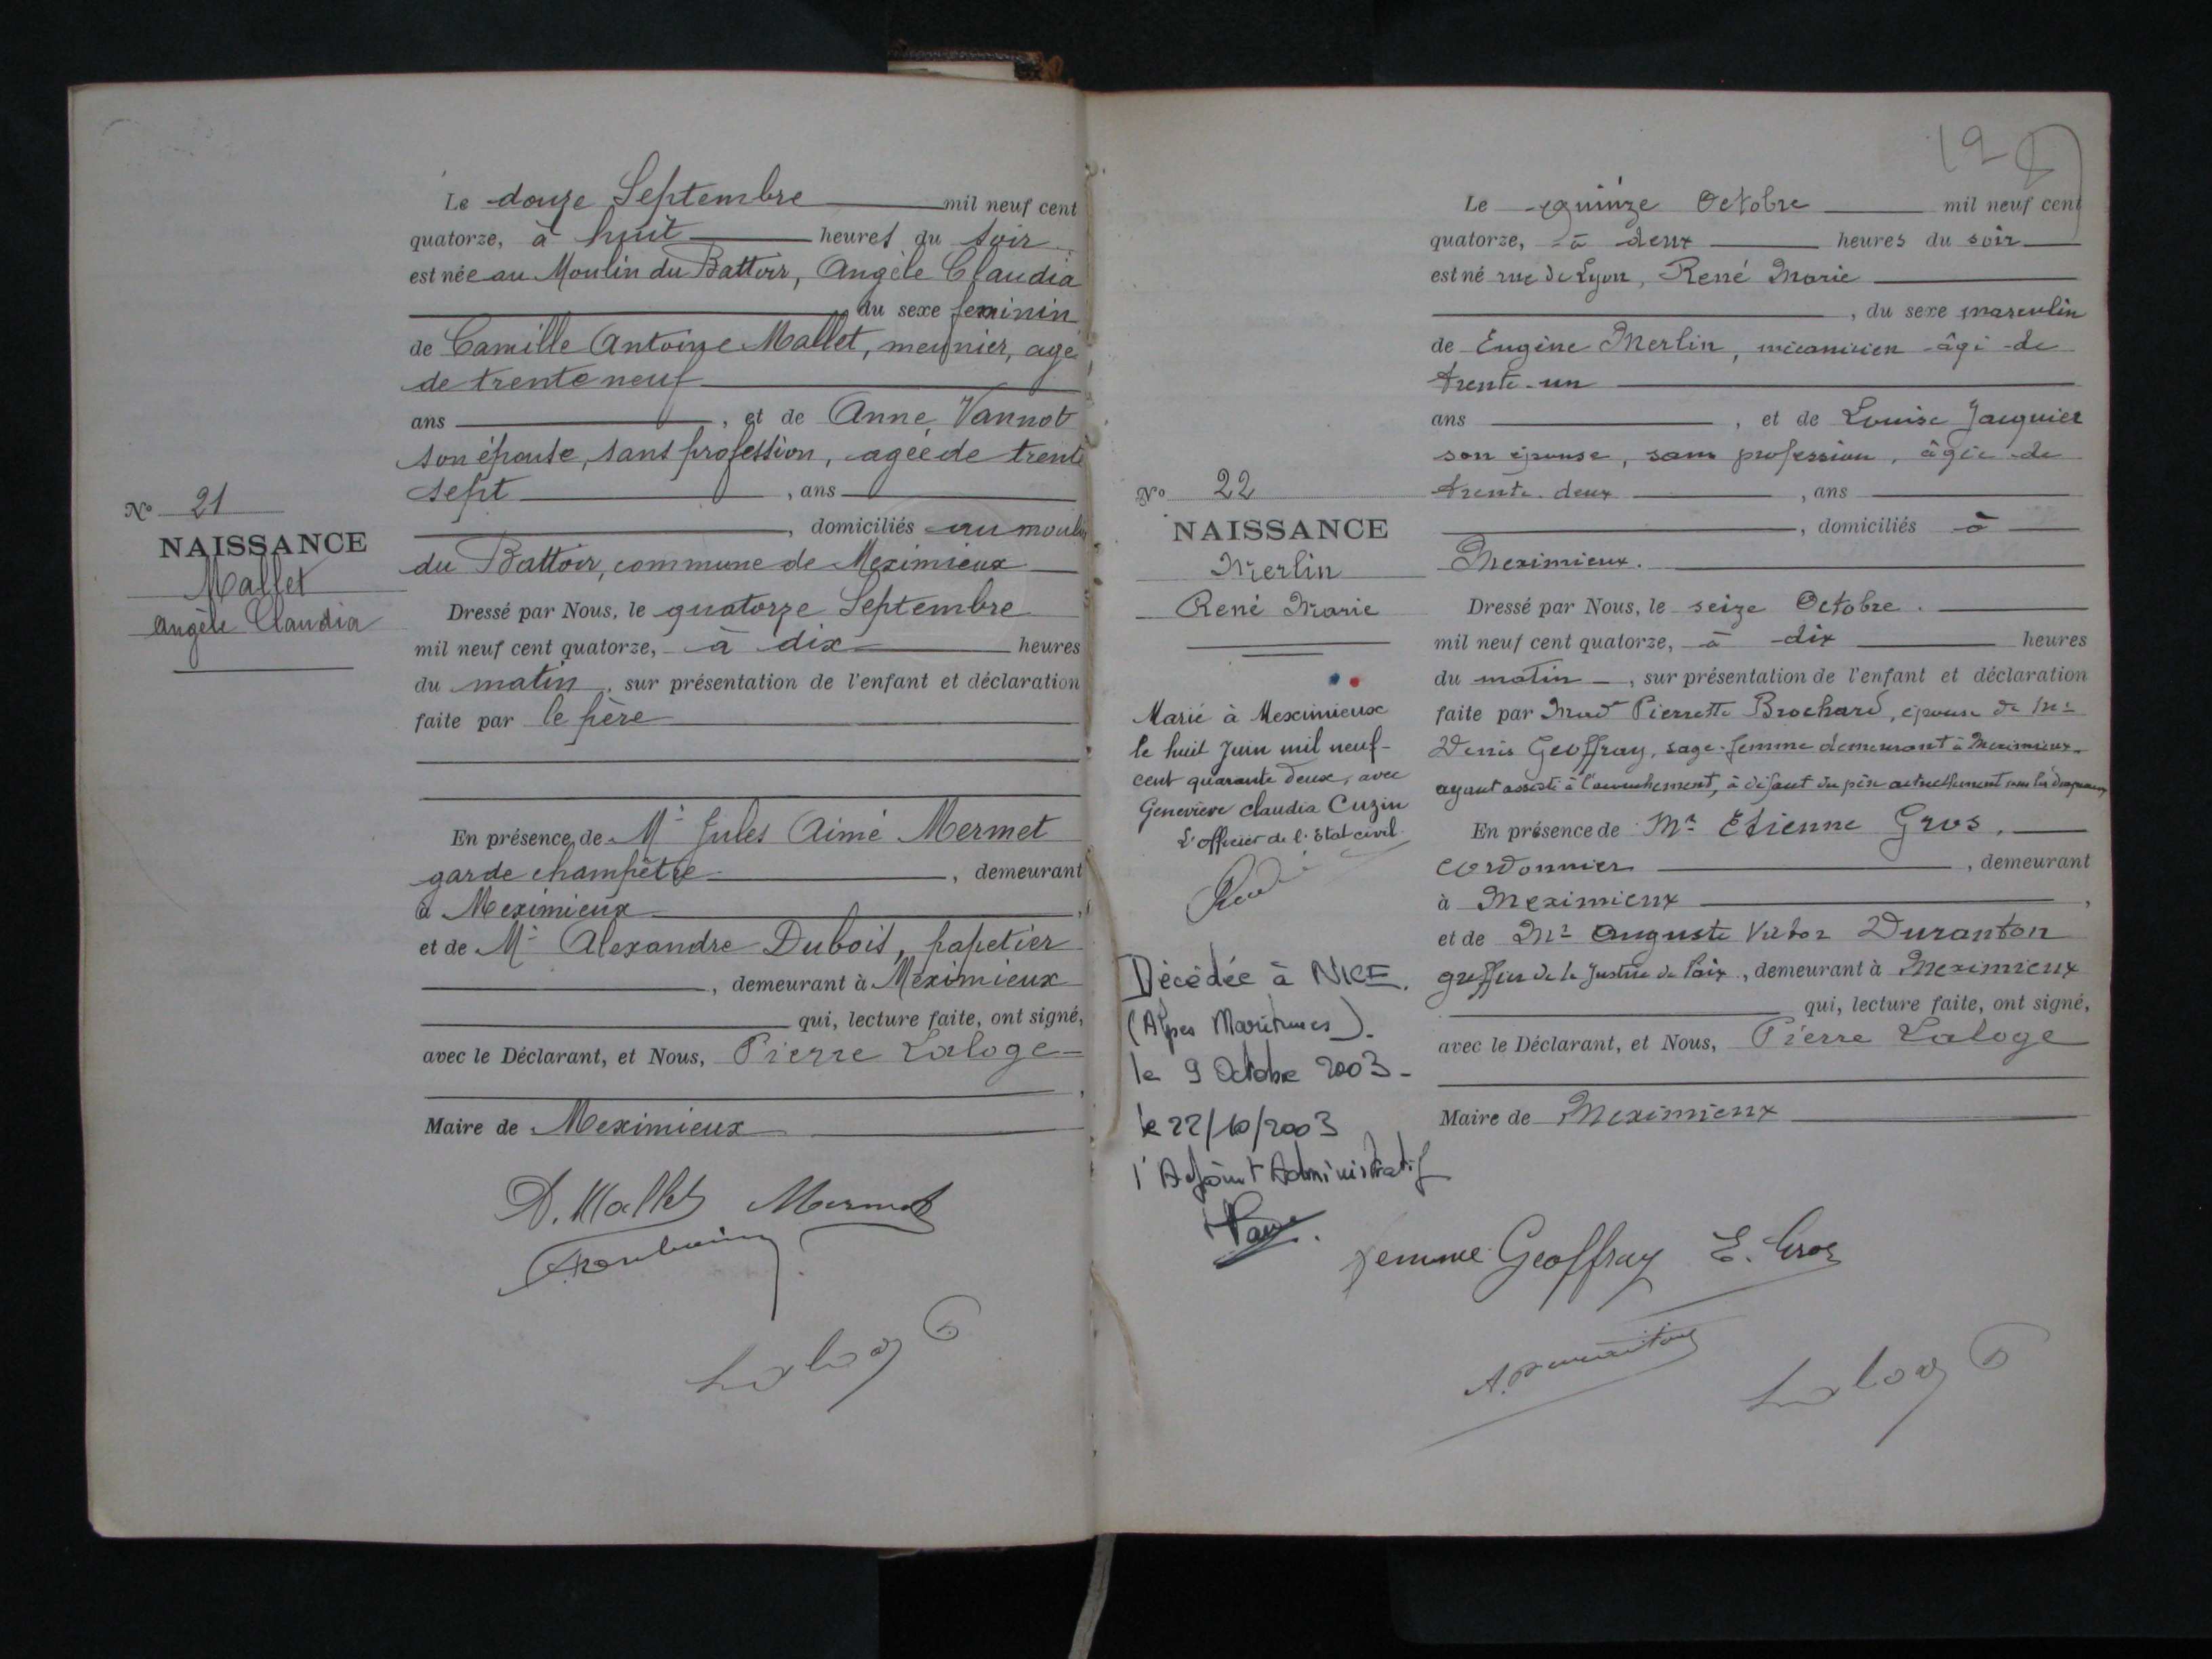 Le douze Septembre mil neuf cent
quatorze, à huit heures du soir
est née au Moulin du Battoir, Angèle Claudia
du sexe feminin
de Camille Antoine Mallet, meunier, agé
de trente neuf
ans , et de Anne Vannot
son épouse, sans profession, agée de trente
sept , ans
, domiciliés au moulin
du Battoir, commune de Meximieux
Dressé par Nous, le quatorze Septembre
mil neuf cent quatorze, à dix heures
du matin , sur présentation de l'enfant et déclaration
faite par le père
En présence de Mr Jules Aimé Mermet
garde champêtre , demeurant
à Meximieux ,
et de Mr Alexandre Dubois, papetier
, demeurant à Meximieux
qui, lecture faite, ont signé,
avec le Déclarant, et Nous, Pierre Laloge
,
Maire de Meximieux
No 21
NAISSANCE
Mallet
Angèle Claudia
A. Mallet Mermet
Laloge
Le quinze Octobre mil neuf cent
quatorze, à deux heures du soir
est né rue de Lyon, René Marie
, du sexe masculin
de Eugène Merlin, mécanicien âgé de
trente-un
ans , et de Louise Jacquier
son épouse, sans profession, âgée de
trente-deux , ans
, domiciliés à
Meximieux.
Dressé par Nous, le seize Octobre.
mil neuf cent quatorze, à dix heures
du matin , sur présentation de l'enfant et déclaration
faite par Mad Pierrette Brochard, épouse de Mr
Denis Geoffray, sage-femme demeurant à Meximieux
ayant assisté à l'accouchement, à défaut du père actuellement sous les drapeaux
En présence de Mr Etienne Gros,
cordonnier , demeurant
à Meximieux ,
et de Mr Auguste Victor Duranton
greffier de la Justice de Paix, demeurant à Meximieux
qui, lecture faite, ont signé,
avec le Déclarant, et Nous, Pierre Laloge
Maire de Meximieux
No 22
NAISSANCE
Merlin
René Marie
Marié à Meximieux
le huit Juin mil neuf-
cent quarante deux, avec
Geneviève Claudia Cuzin
L'officier de l'Etat civil
Décédée à NICE.
(Alpes Maritimes).
le 9 Octobre 2003-
le 22/10/2003
l'Adjoint Administratif
femme Geoffray E. Gros
A. Duranton
Laloge